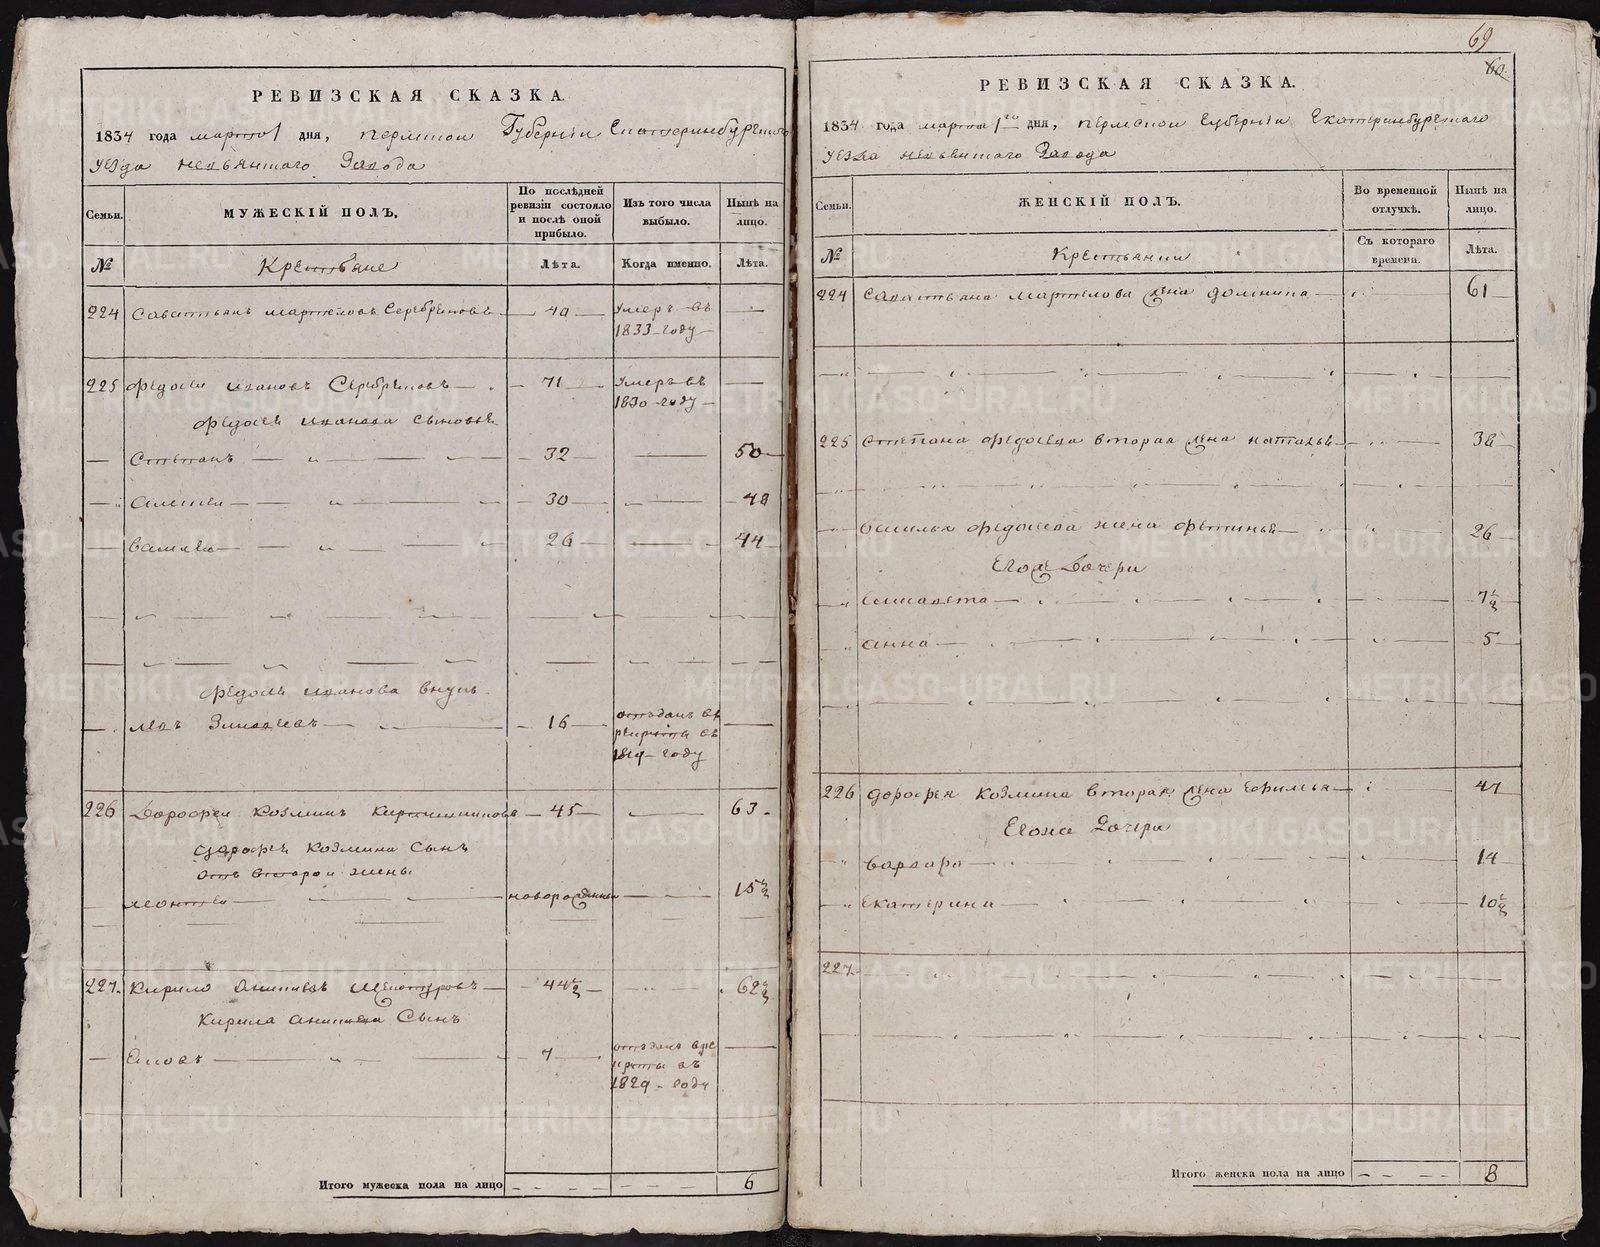 РЕВИЗСКАЯ СКАЗКА.
1834 года марта 1 дня, пермской Губернiи Екатеринбургского
уезда невьянского Завода
Семьи.
МУЖЕСКIЙ ПОЛЪ.
По послѣдней ревизiи состояло и послѣ оной прибыло.
Изъ того числа выбыло.
Нынѣ на лицо.
№
Крестьяне
Лѣта.
Когда именно.
Лѣта.
224 Савастьянъ мартеловъ Серебряковъ 40 Умеръ въ
1833 году
225 Федосеи ивановъ Серебряковъ 71 Умеръ въ
1830 году
Федосея иванова сыновья
Степанъ 32 50
алексеи 30 48
василеи 26 44
Федосея иванова внукъ
левъ 16 отъданъ въ
рекруты въ
году
226 дорофеи козминъ 45 63
дорофея козмина сынъ
отъ второи жены
леонтеи новорожденнои 15½
227. кирило 44½ 62½
кирила сынъ
7 отъданъ вре
круты въ
1829 году
Итого мужеска пола на лицо 6
69
60.
РЕВИЗСКАЯ СКАЗКА.
1834 года марта 1го дня, пермскои Губернiи Екатеринбургского
уезда невьянского Завода
Семьи.
ЖЕНСКIЙ ПОЛЪ.
Во временной отлучкѣ.
Нынѣ на лицо.
№
Крестьянки
Съ котораго времени.
Лѣта.
224 Савастьяна мартелова жена домнина 61
225 степана федосеева вторая жена наталья 38
василья федосеева жена фетинья 26
Егоже дочери
елисавета 7½
анна 5
226 дорофея козмина вторая жена ефимья 47
Егоже дочери
варвара 14
Екатерина 10½
227.
Итого женска пола на лицо 8